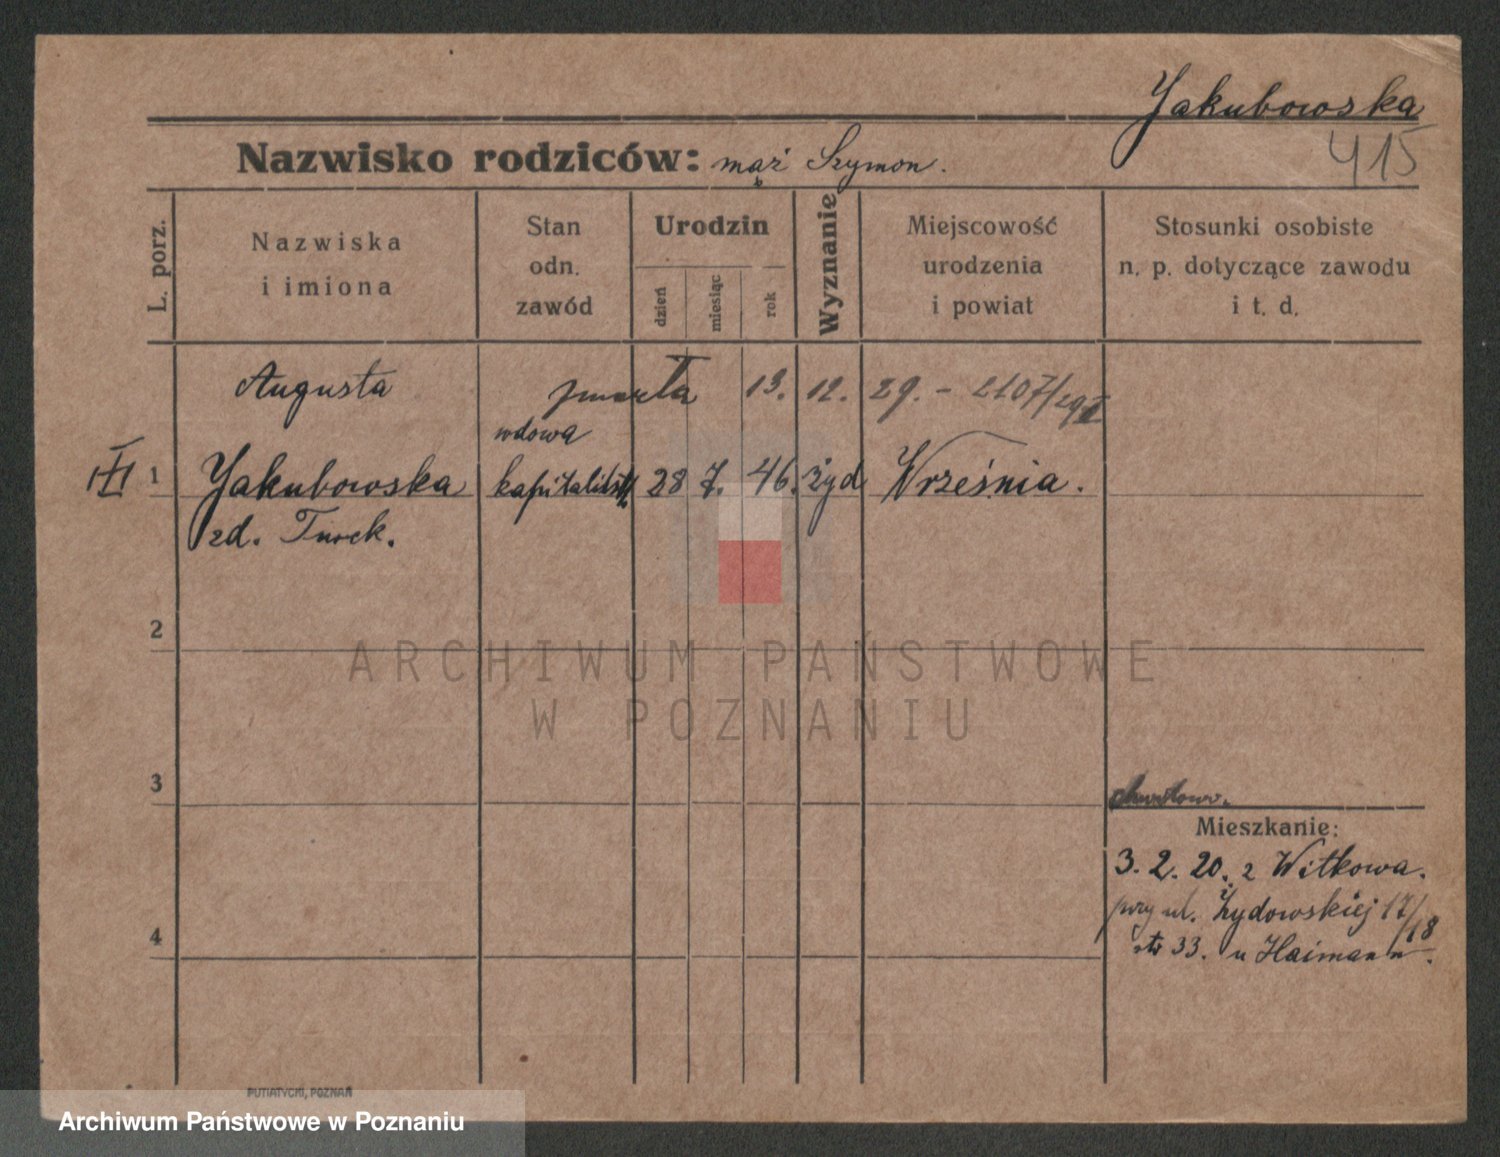 Jakubowska
415
Nazwisko rodziców: mąż Szymon.
L. porz.
Nazwiska
i imiona
Stan
odn.
zawód
Urodzin
dzień
miesiąc
rok
Wyznanie
Miejscowość
urodzenia
i powiat
Stosunki osobiste
n. p. dotyczące zawodu
i t. d.
Augusta zmarła 13. 12. 29. - 2107/29
wdowa
1 Jakubowska 28 7. 46. żyd Września.
zd. Turek.
2
ARCHIWUM PAŃSTWOWE
W POZNANIU
3
Mieszkanie:
3. 2. 20. z Witkowa.
przy ul. Żydowskiej 17/18
4
33. u Haimann.
PUTIATYCKI, POZNAŃ
Archiwum Państwowe w Poznaniu